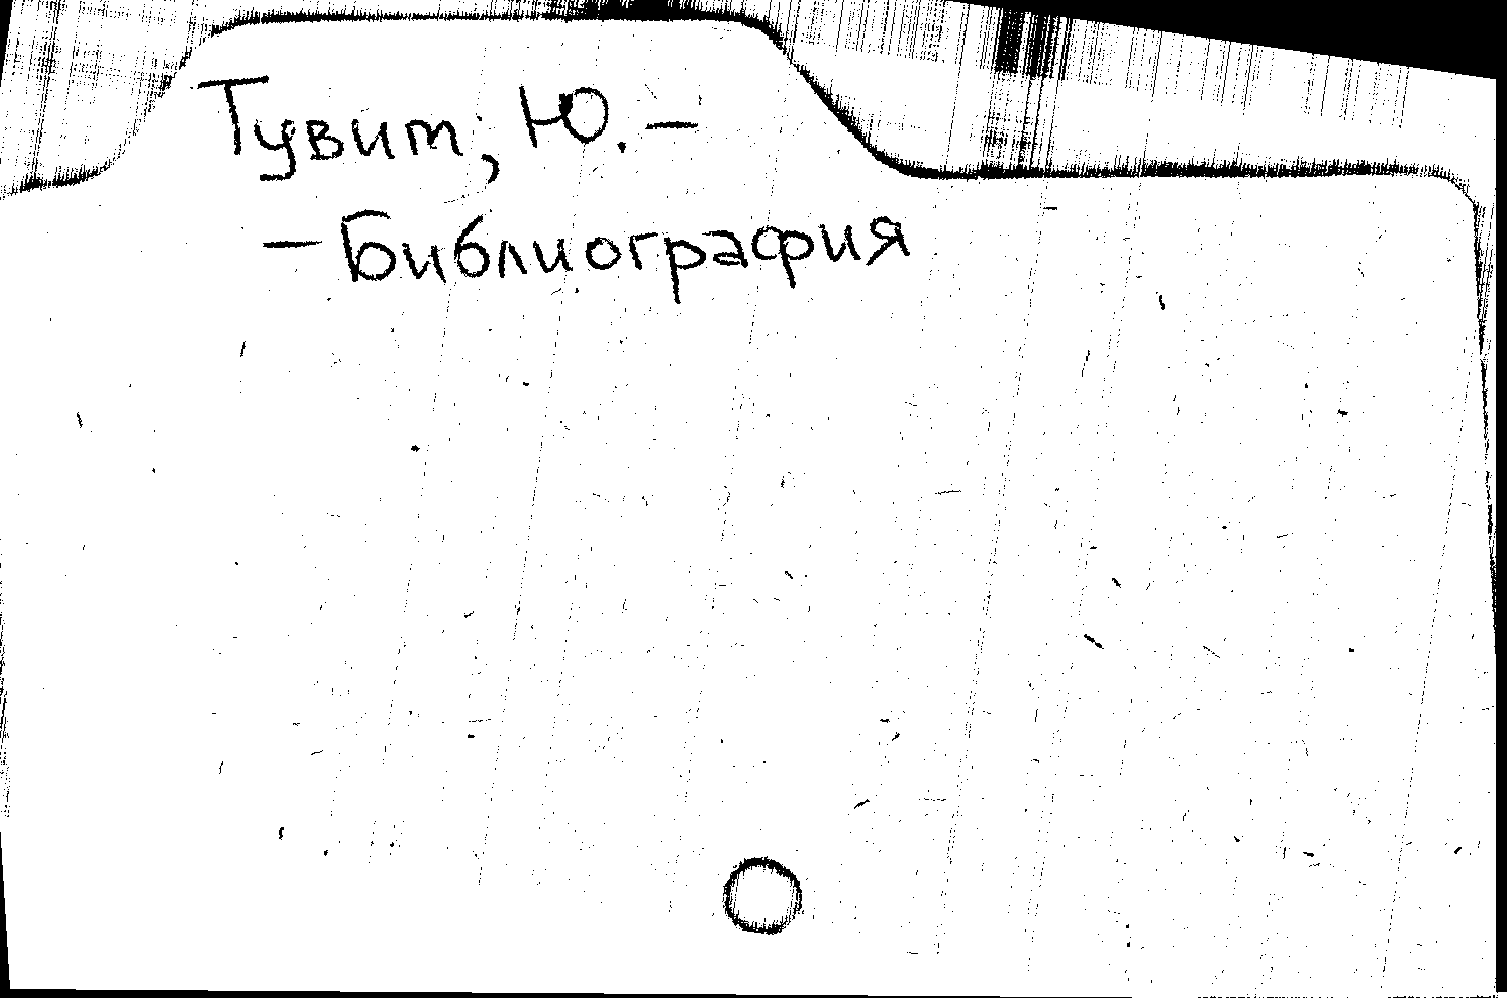 Тувим, Ю. —
— Библиография